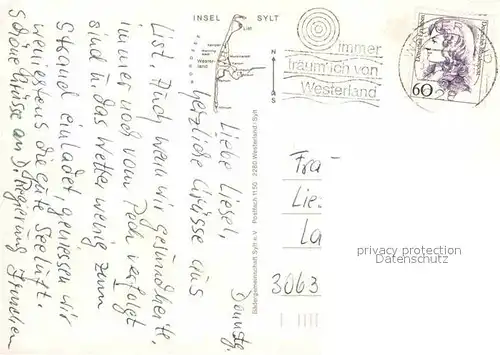 INSEL SYLT
List
Westerland
N
S
immer
träum' ich von
Westerland
Deutsche Bundespost
60
Bädergemeinschaft Sylt e.V. Postfach 1150 2280 Westerland / Sylt
Donnstg.
Liebe Liesel,
herzliche Grüsse aus
List. Auch wenn wir gesundheitl.
immer noch vom Pech verfolgt
sind u. das Wetter wenig zum
Strand einladet, genießen wir
wenigstens die gute Seeluft.
Schöne Grüsse an D. Regierung
Fra
Lie
La
3063
privacy protection
Datenschutz